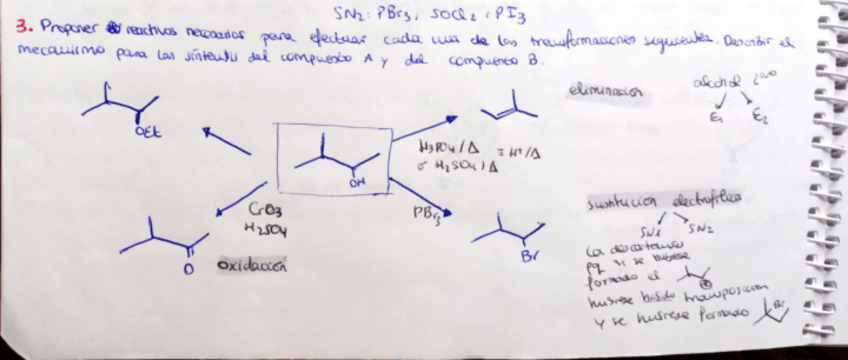 SN2: PBr3, SOCl2, PI3
3. Proponer reactivos necesarios para efectuar cada una de las transformaciones siguientes. Describir el
mecanismo para las síntesis del compuesto A y del compuesto B.
eliminación
alcohol 2ario
E1 E2
OEt
H3PO4/Δ ≡ H+/Δ
o H2SO4/Δ
OH
CrO3
H2SO4
PBr3
O
oxidación
Br
sustitución electrofílica
SN1 SN2
La descartamos
pq si se hubiese
formado el
hubiese habido transposición
y se hubiese formado
Br